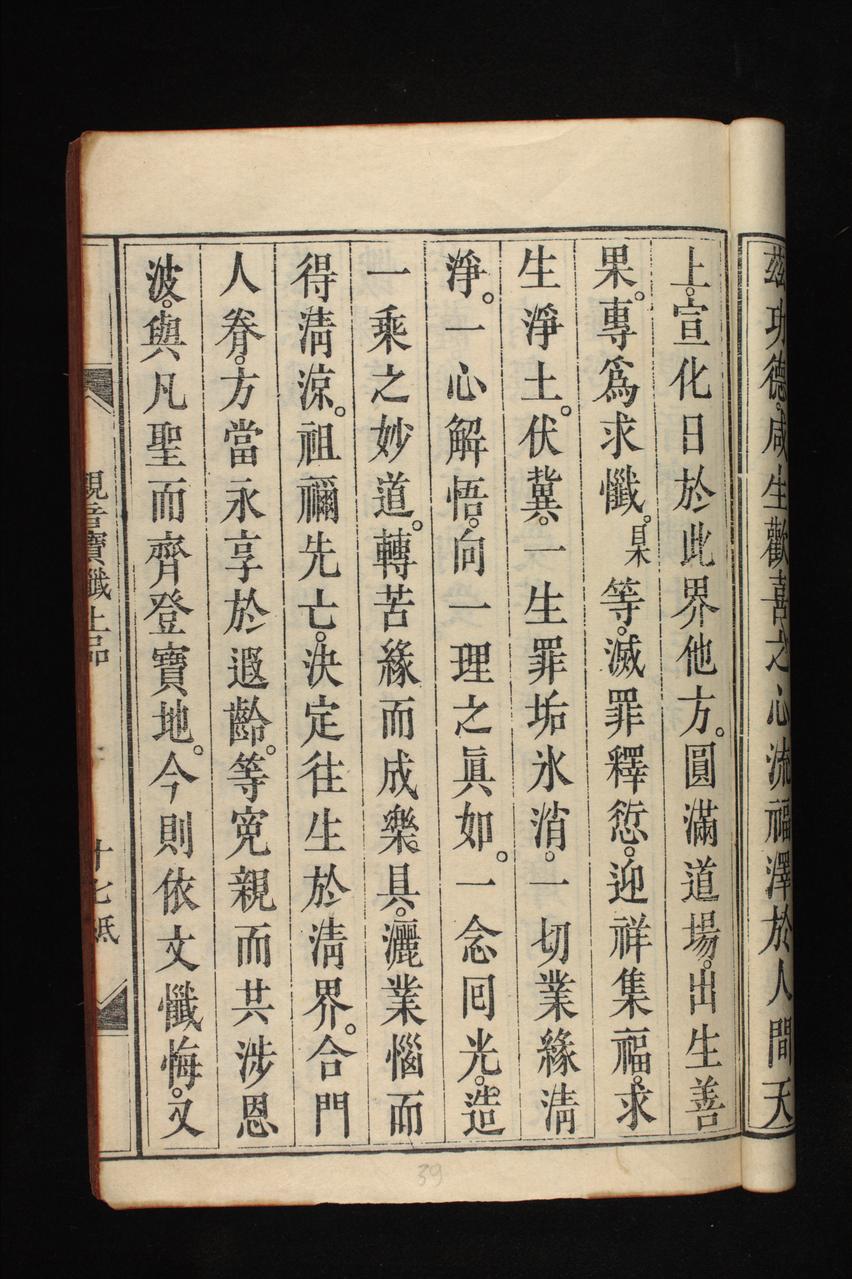 茲功德。咸生歡喜之心。流福澤於人間天
上。宣化日於此界他方。圓滿道場。出生善
果。專爲求懺。某甲等。滅罪釋愆。迎祥集福。求
生淨土。伏冀。一生罪垢氷消。一切業緣清
淨。一心解悟。向一理之眞如。一念回光。造
一乘之妙道。轉苦緣而成樂具。灑業惱而
得清涼。祖禰先亡。決定往生於清界。合門
人眷。方當永享於遐齡。等寃親而共涉恩
波。與凡聖而齊登寶地。今則依文懺悔。又
觀音寶懺上品
十七紙
39